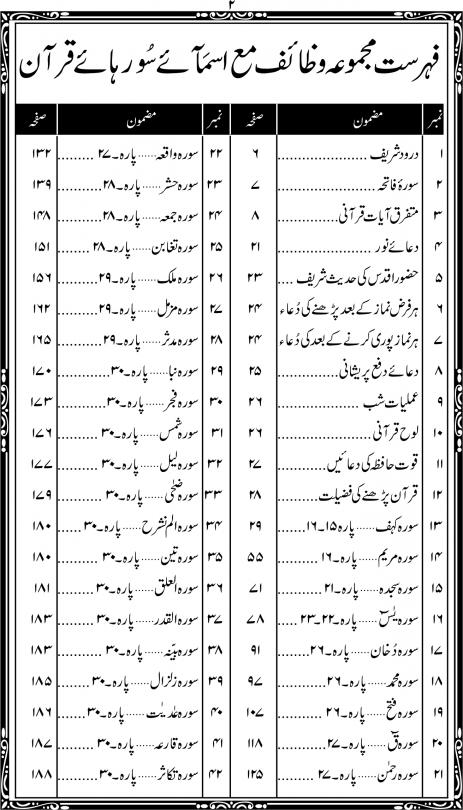 ۲
فہرست مجموعہ وظائف مع اسمآئے سُورہائے قرآن
نمبر مضمون صفحہ
۱ درود شریف ........ ۶
۲ سورۂ فاتحہ ........ ۷
۳ متفرق آیات قرآنی ........ ۸
۴ دعائے نور ........ ۲۱
۵ حضور اقدس کی حدیث شریف .... ۲۳
۶ ہر فرض نماز کے بعد پڑھنے کی دُعاء ۲۴
۷ ہر نماز پوری کرنے کے بعد کی دُعاء ۲۴
۸ دعائے دفع پریشانی ........ ۲۵
۹ عملیات شب ........ ۲۶
۱۰ لوح قرآنی ........ ۲۶
۱۱ قوت حافظ کی دعائیں ........ ۲۷
۱۲ قرآن پڑھنے کی فضیلت ........ ۲۸
۱۳ سورہ کہف ...... پارہ ۱۵۔۱۶ ........ ۲۹
۱۴ سورہ مریم ...... پارہ۔۱۶ ........ ۵۵
۱۵ سورہ سجدہ ...... پارہ۔۲۱ ........ ۷۱
۱۶ سورہ یٰسٓ ...... پارہ۔۲۲۔۲۳ ........ ۷۸
۱۷ سورہ دُخان ...... پارہ۔۲۶ ........ ۹۱
۱۸ سورہ محمد ...... پارہ۔۲۶ ........ ۹۷
۱۹ سورہ فتح ...... پارہ۔۲۶ ........ ۱۰۷
۲۰ سورہ قٓ ...... پارہ۔۲۷ ........ ۱۱۸
۲۱ سورہ رحمٰن ...... پارہ۔۲۷ ........ ۱۲۵
نمبر مضمون صفحہ
۲۲ سورہ واقعہ ...... پارہ۔۲۷ ........ ۱۳۲
۲۳ سورہ حشر ...... پارہ۔۲۸ ........ ۱۳۹
۲۴ سورہ جمعہ ...... پارہ۔۲۸ ........ ۱۴۸
۲۵ سورہ تغابن ...... پارہ۔۲۸ ........ ۱۵۱
۲۶ سورہ ملک ...... پارہ۔۲۹ ........ ۱۵۶
۲۷ سورہ مزمل ...... پارہ۔۲۹ ........ ۱۶۲
۲۸ سورہ مدثر ...... پارہ۔۲۹ ........ ۱۶۵
۲۹ سورہ نبا ...... پارہ۔۳۰ ........ ۱۷۰
۳۰ سورہ فجر ...... پارہ۔۳۰ ........ ۱۷۳
۳۱ سورہ شمس ...... پارہ۔۳۰ ........ ۱۷۶
۳۲ سورہ لیل ...... پارہ۔۳۰ ........ ۱۷۷
۳۳ سورہ ضحٰی ...... پارہ۔۳۰ ........ ۱۷۹
۳۴ سورہ الم نشرح ...... پارہ۔۳۰ ........ ۱۸۰
۳۵ سورہ تین ...... پارہ۔۳۰ ........ ۱۸۰
۳۶ سورہ العلق ...... پارہ۔۳۰ ........ ۱۸۱
۳۷ سورہ القدر ...... پارہ۔۳۰ ........ ۱۸۳
۳۸ سورہ بیّنہ ...... پارہ۔۳۰ ........ ۱۸۳
۳۹ سورہ زلزال ...... پارہ۔۳۰ ........ ۱۸۵
۴۰ سورہ عٰدیٰت ...... پارہ۔۳۰ ........ ۱۸۶
۴۱ سورہ قارعہ ...... پارہ۔۳۰ ........ ۱۸۷
۴۲ سورہ تکاثر ...... پارہ۔۳۰ ........ ۱۸۸